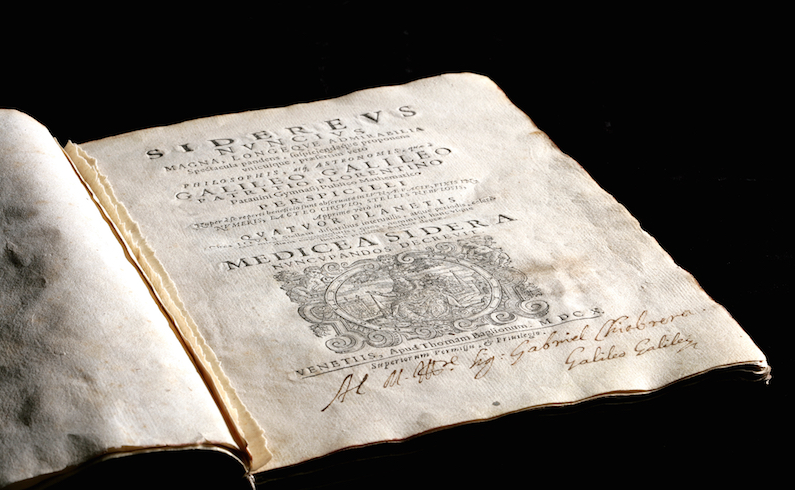 SIDEREVS
NVNCIVS
MAGNA, LONGEQVE ADMIRABILIA
Spectacula pandens, suspiciendaque proponens
vnicuique, præsertim verò
PHILOSOPHIS, atq́; ASTRONOMIS, quæ à
GALILEO GALILEO
PATRITIO FLORENTINO
Patauini Gymnasij Publico Mathematico
PERSPICILLI
Nuper à se reperti beneficio sunt obseruata in LVNÆ FACIE, FIXIS IN-
NVMERIS, LACTEO CIRCVLO, STELLIS NEBVLOSIS,
Apprime verò in
QVATVOR PLANETIS
MEDICEA SIDERA
NVNCVPANDOS DECREVIT.
VENETIIS, Apud Thomam Baglionum. MDCX
Superiorum Permissu, & Priuilegio.
Al Sig. Gabriel Chiabrera
Galileo Galilei